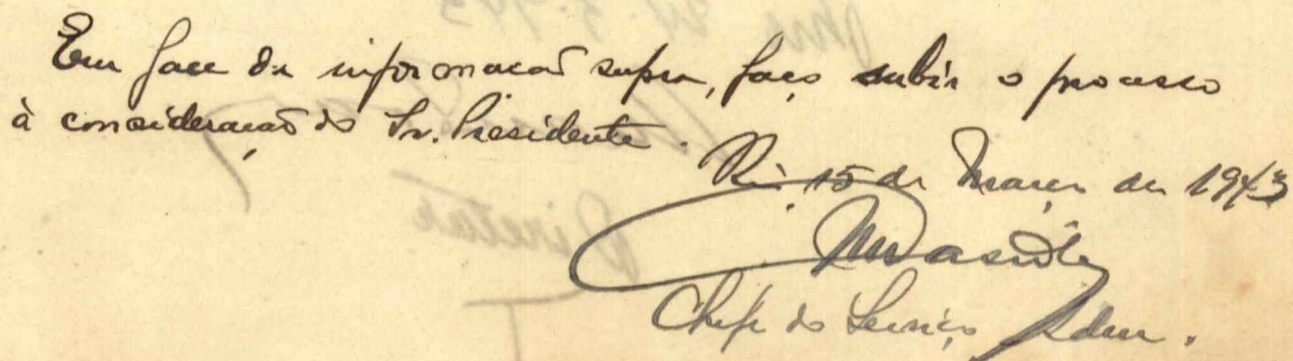 Em face da informação supra, faço subir o processo
à consideração do Sr. Presidente.
Rio 15 de Março de 1943
Chefe do Serviço Adm.